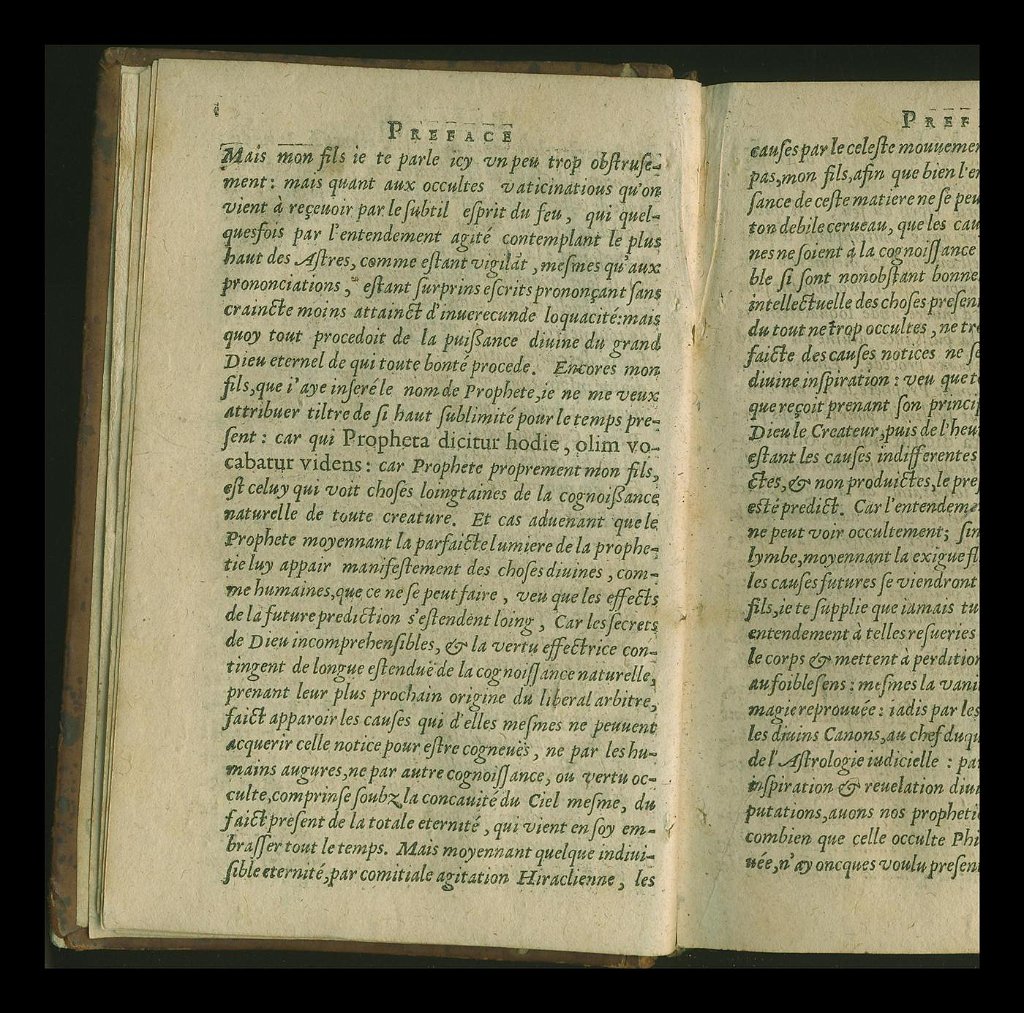 PREFACE
Mais mon fils ie te parle icy vn peu trop obstruse-
ment: mais quant aux occultes vaticinatious qu'on
vient à reçeuoir par le subtil esprit du feu, qui quel-
quesfois par l'entendement agité contemplant le plus
haut des Astres, comme estant vigilãt, mesmes qu'aux
prononciations, estant surprins escrits prononçant sans
craincte moins attainct d'inuerecunde loquacité: mais
quoy tout procedoit de la puissance diuine du grand
Dieu eternel de qui toute bonté procede. Encores mon
fils, que i'aye inseré le nom de Prophete, ie ne me veux
attribuer tiltre de si haut sublimité pour le temps pre-
sent: car qui Propheta dicitur hodie, olim vo-
cabatur videns: car Prophete proprement mon fils,
est celuy qui voit choses loingtaines de la cognoissance
naturelle de toute creature. Et cas aduenant que le
Prophete moyennant la parfaicte lumiere de la prophe-
tie luy appair manifestement des choses diuines, com-
me humaines, que ce ne se peut faire, veu que les effects
de la future prediction s'estendent loing, Car les secrets
de Dieu incomprehensibles, & la vertu effectrice con-
tingent de longue estenduë de la cognoissance naturelle,
prenant leur plus prochain origine du liberal arbitre,
faict apparoir les causes qui d'elles mesmes ne peuuent
acquerir celle notice pour estre cogneuës, ne par les hu-
mains augures, ne par autre cognoissance, ou vertu oc-
culte, comprinse soubz la concauité du Ciel mesme, du
faict present de la totale eternité, qui vient en soy em-
brasser tout le temps. Mais moyennant quelque indiui-
sible eternité, par comitiale agitation Hiraclienne, les
PREF
causes par le celeste mouuemen
pas, mon fils, afin que bien l'en
sance de ceste matiere ne se peu
ton debile cerueau, que les cau
nes ne soient à la cognoissance
ble si sont nonobstant bonne
intellectuelle des choses presen
du tout ne trop occultes, ne tr
faicte des causes notices ne s
diuine inspiration: veu que t
que reçoit prenant son princi
Dieu le Createur, puis de l'heu
estant les causes indifferentes
ctes, & non produictes, le pre
esté predict. Car l'entendeme
ne peut voir occultement; sin
lymbe, moyennant la exigue fl
les causes futures se viendront
fils, ie te supplie que iamais tu
entendement à telles resueries
le corps & mettent à perdition
au foible sens: mesmes la vani
magie reprouuée: iadis par les
les diuins Canons, au chef duqu
de l'Astrologie iudicielle: par
inspiration & reuelation diui
putations, auons nos propheti
combien que celle occulte Phi
uée, n'ay oncques voulu presen